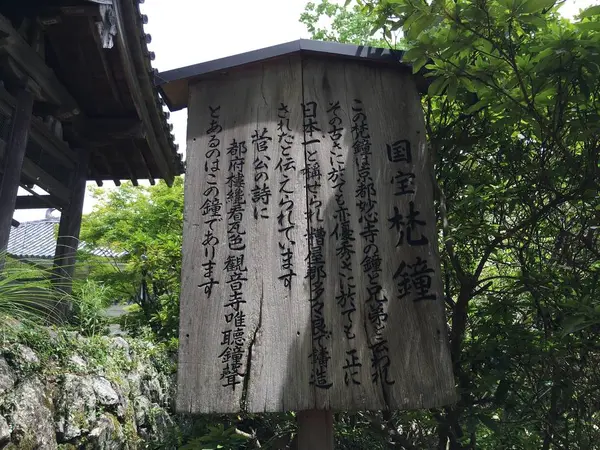 国宝 梵鐘
この梵鐘は京都妙心寺の鐘と兄弟と云われ
その古さに於ても亦優秀さに於ても正に
日本一と称せられ糟屋郡多々良で鋳造
されたと伝えられています
菅公の詩に
都府楼纔看瓦色 観音寺唯聴鐘聲
とあるのはこの鐘であります